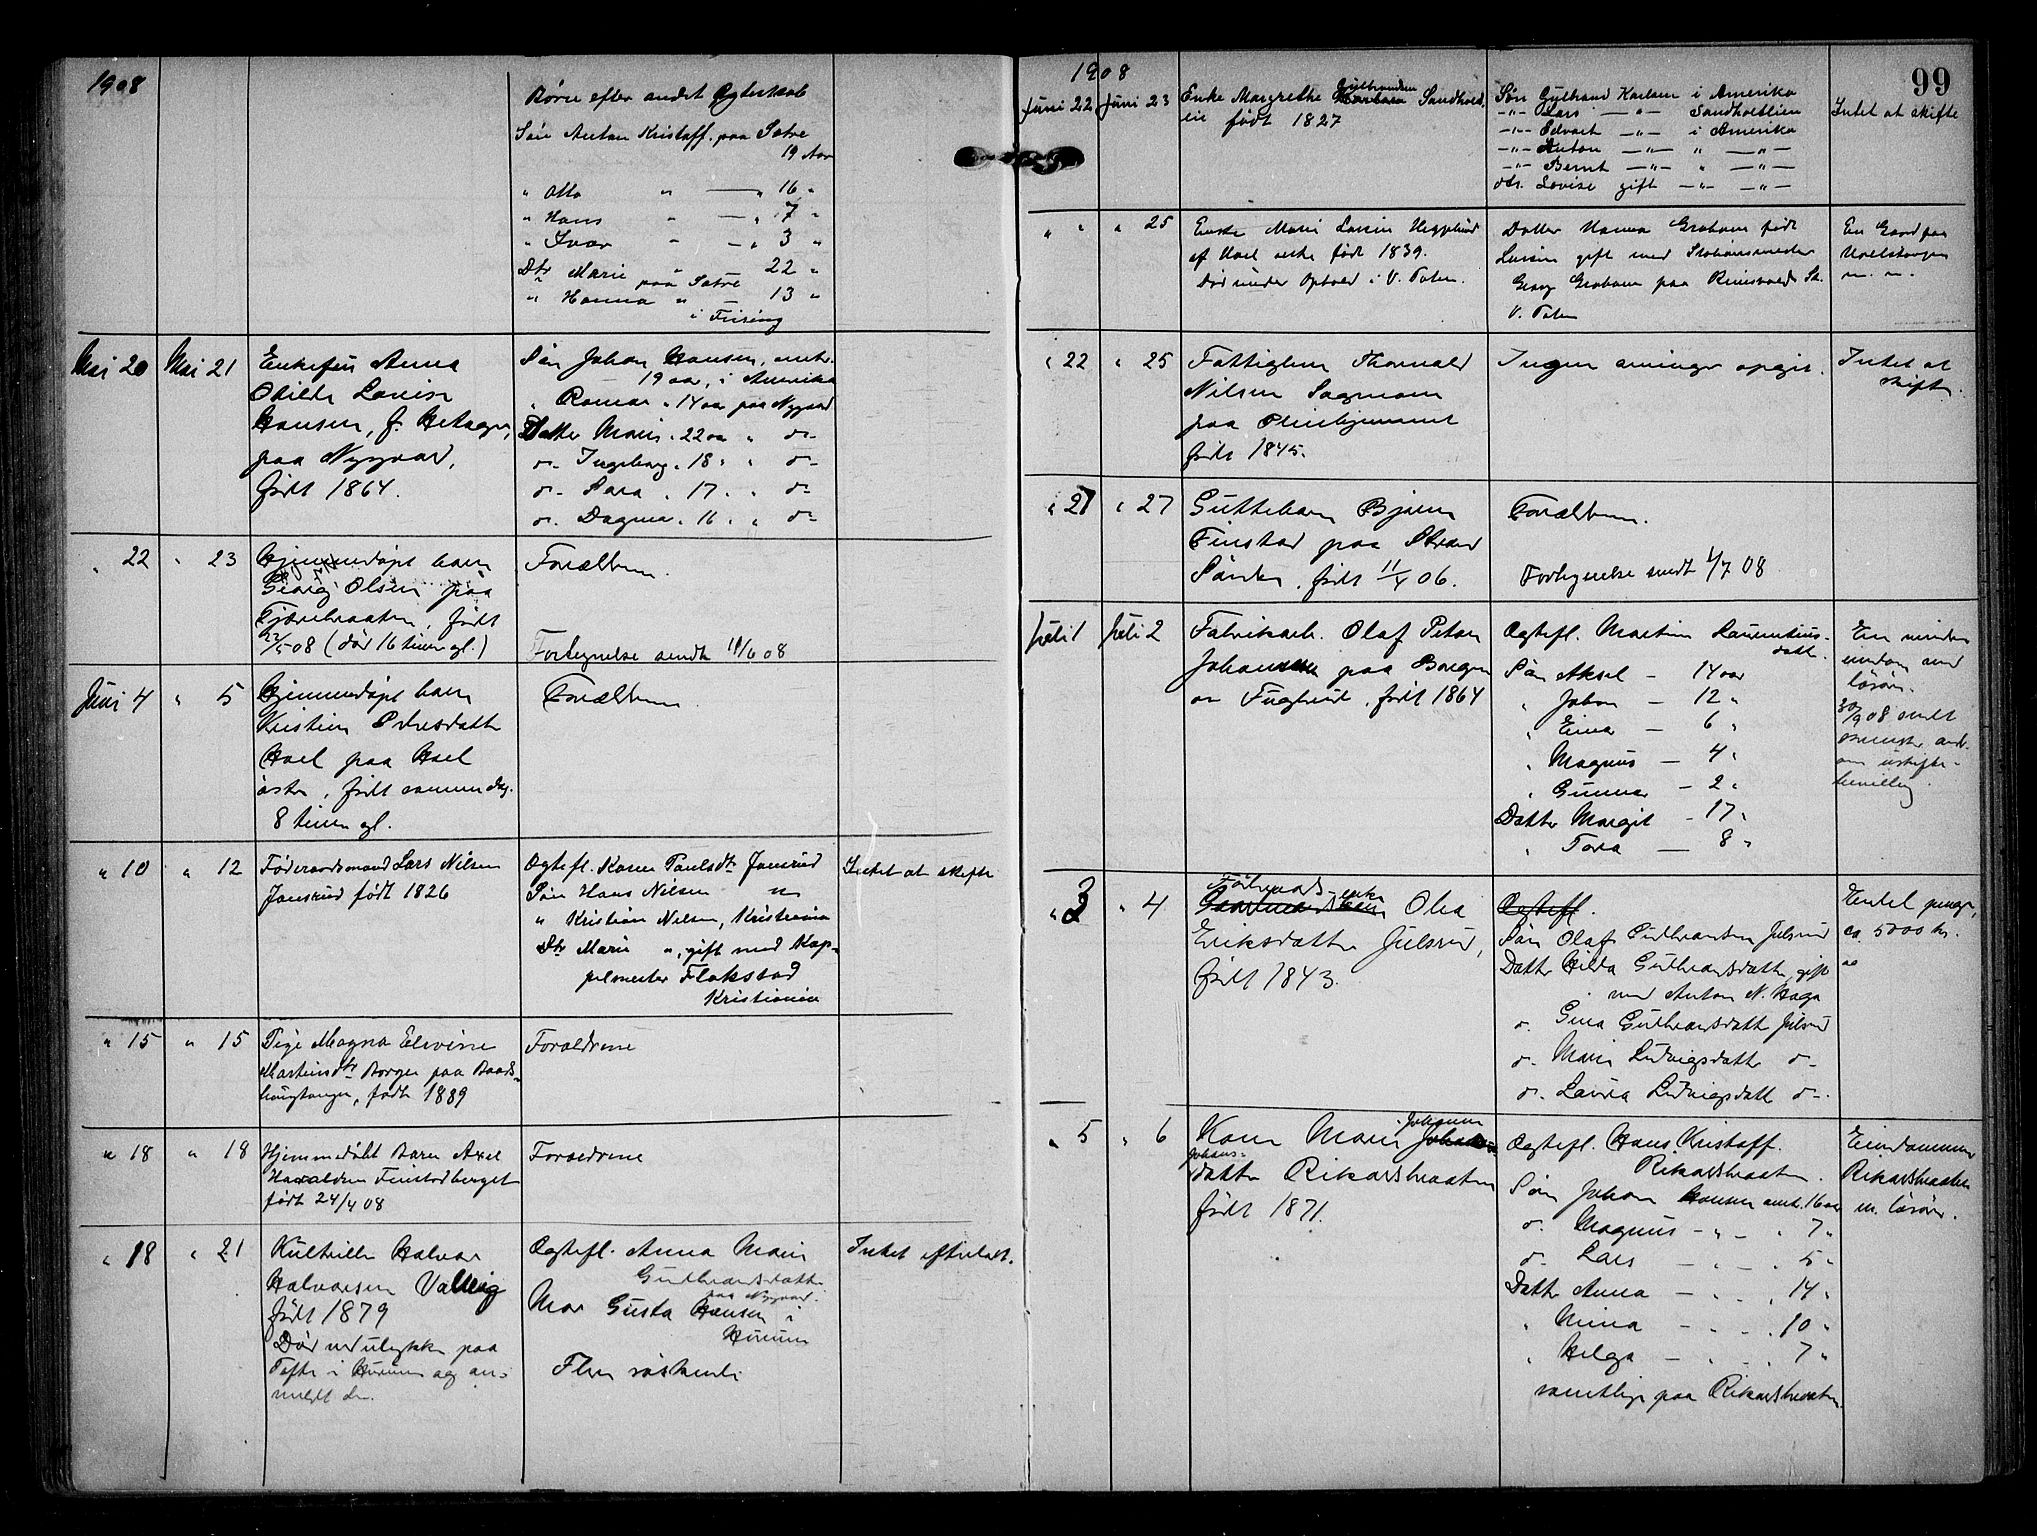 1908
Børn efter andet Egteskab
Søn Anton Kristoff. paa Sætre
19 Aar
" Otto " — " 16 "
" Hans " — " 7 "
" Ivar " — " 3 "
Dtr Marie " 22 "
paa Sætre
" Hanna " — 13 "
i
Mai 20 Mai 21 Enkefru Anna
Otilde Lovise
Hansen, f.
paa Nygaard,
født 1864.
Søn Johan Hansen, omtr.
19 aar, i Amerika
" Ragnar " 14 aar paa Nygaard
Datter Marie " 22 aar " do-
do- Ingeborg " 18 " " do-
do- Sara " 17 " " do-
do- Dagmar " 16 " " do-
" 22 " 23 Hjemmedøpt barn
Georg Olsen paa
Tjærebraaten, født
22/5 08 (død 16 timer gl.)
Forældrene.
Fortegnelse sendt 11/6 08
Juni 4 " 5 Hjemmedøpt barn
Kristine Pedersdatter
Hoel paa Hoel
østre, født samme dag.
8 timer gl.
Forældrene.
" 10 " 12 Føderaadsmand Lars Nilsen
Jonsrud født 1826
Ægtefl. Karen Paulsdtr Jonsrud
Søn Hans Nilsen "
" Kristian Nilsen, Kristiania
Dtr Marie ", gift med Kap-
pelmester Flakstad
Kristiania
Intet at skifte
" 15 " 15 Pige Magna Elvine
Martinsdtr Borgen paa Baads-
haugtangen, født 1889
Forældrene
" 18 " 18 Hjemmedøbt Barn Axel
Haraldsen Finstadberget
født 24/4 08
Forældrene
" 18 " 21 Halvor
Halvorsen
født 1879
Død ved ulykke paa
Tofte i Hurum og an-
meldt der.
Ægtefl. Anna Marie
Gudbrandsdatter
paa Nygaard.
Mor Gusta Hansen i
Hurum
Flere søskende
Intet efterladt.
1908
99
Juni 22 Juni 23 Enke Margrethe Gulbrandsen Sandholt
eie født 1827
Søn Gulbrand Karlsen i Amerika
-"- Lars -"- Sandholtlien
-"- Edvart -"- i Amerika
-"- Anton -"- " -"-
-"- Bernt -"- " -"-
dtr. Lovise gift -"- -"-
Intet at skifte
" " " 25 Enke Marie Larsen Hegglund
af Hoel østre født 1839.
Død under Ophold i V. Toten.
Datter Hanna Graham født
Larsen gift med Stationsmester
Georg Graham paa Reinsvold St.
V. Toten
En Gaard paa
Hoelstangen
m. m.
" 22 " 25 Fattiglem Thorvald
Nilsen Sagmoen
paa Pleiehjemmet
født 1845.
Ingen arvinger opgit.
Intet at
skifte.
" 27 " 27 Guttebarn Bjarne
Finstad paa Strand
Søndre, født 11/5 06.
Forældrene.
Fortegnelse sendt 1/7 08
Juli 1 Juli 2 Fabrikarb. Olaf Petter
Johansen paa Borgen
av Fuglerud, født 1864
Ægtefl. Martine Laurentius-
datt.
Søn Aksel — 14 aar
" Johan — 12 "
" Einar — 6 "
" Magnus — 4 "
" Gunnar — 2 "
Datter Margit — 17 "
" Tora — 8 "
En mindre
eiendom med
løsøre.
30/9 08 sendt
om uskifte-
bevilling.
" 3 " 4 Føderaads-enke Olea
Eriksdatter Julsrud,
født 1843.
Ægtefl.
Søn Olaf Gudbrandsen Julsrud
Datter Hilda Gulbrandsdatter, gift
med Anton N. Haga
do- Gina Gulbrandsdatt Julsrud
do- Marie Ludvigsdatter do-
do- Laura Ludvigsdatt do-
Endel penge,
ca 5000 kr.
" 5 " 6 Karen Marie Johanne
Johans-
datter Rikardsbraaten
født 1871.
Ægtefl. Hans Kristoff.
Rikardsbraaten.
Søn Johan Hansen omtr. 16 aar
do- Magnus — " — " 7 "
do- Lars — " — " 5 "
Datter Anna — " — " 14 "
" Mina — " — " 10 "
" Helga — " — " 7 "
samtlige paa Rikardsbraaten.
Eiendommen
Rikardsbraaten
m. løsøre.